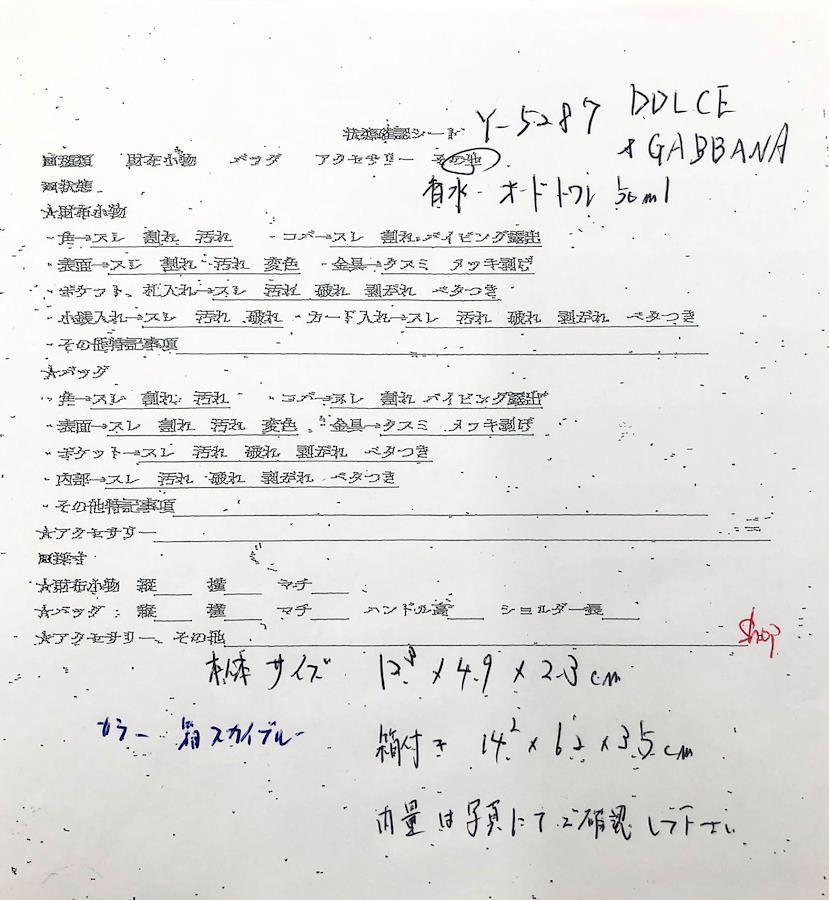 状態確認シート Y-5287 DOLCE
& GABBANA
■種類 財布小物 バッグ アクセサリー その他
■状態 香水 オードトワレ 50ml
★財布小物
・角→スレ 割れ 汚れ ・コバ→スレ 割れ パイピング露出
・表面→スレ 割れ 汚れ 変色 ・金具→クスミ メッキ剥げ
・ポケット、札入れ→スレ 汚れ 破れ 剥がれ ベタつき
・小銭入れ→スレ 汚れ 破れ ・カード入れ→スレ 汚れ 破れ 剥がれ ベタつき
・その他特記事項
★バッグ
・角→スレ 割れ 汚れ ・コバ→スレ 割れ パイピング露出
・表面→スレ 割れ 汚れ 変色 ・金具→クスミ メッキ剥げ
・ポケット→スレ 汚れ 破れ 剥がれ ベタつき
・内部→スレ 汚れ 破れ 剥がれ ベタつき
・その他特記事項
★アクセサリー
■採寸
★財布小物 縦 横 マチ
★バッグ: 縦 横 マチ ハンドル高 ショルダー長
★アクセサリー、その他 Shop
本体サイズ × 4.9 × 2.3 cm
カラー 箱スカイブルー 箱付き 14.2 × 6.2 × 3.5 cm
内量は写真にてご確認して下さい